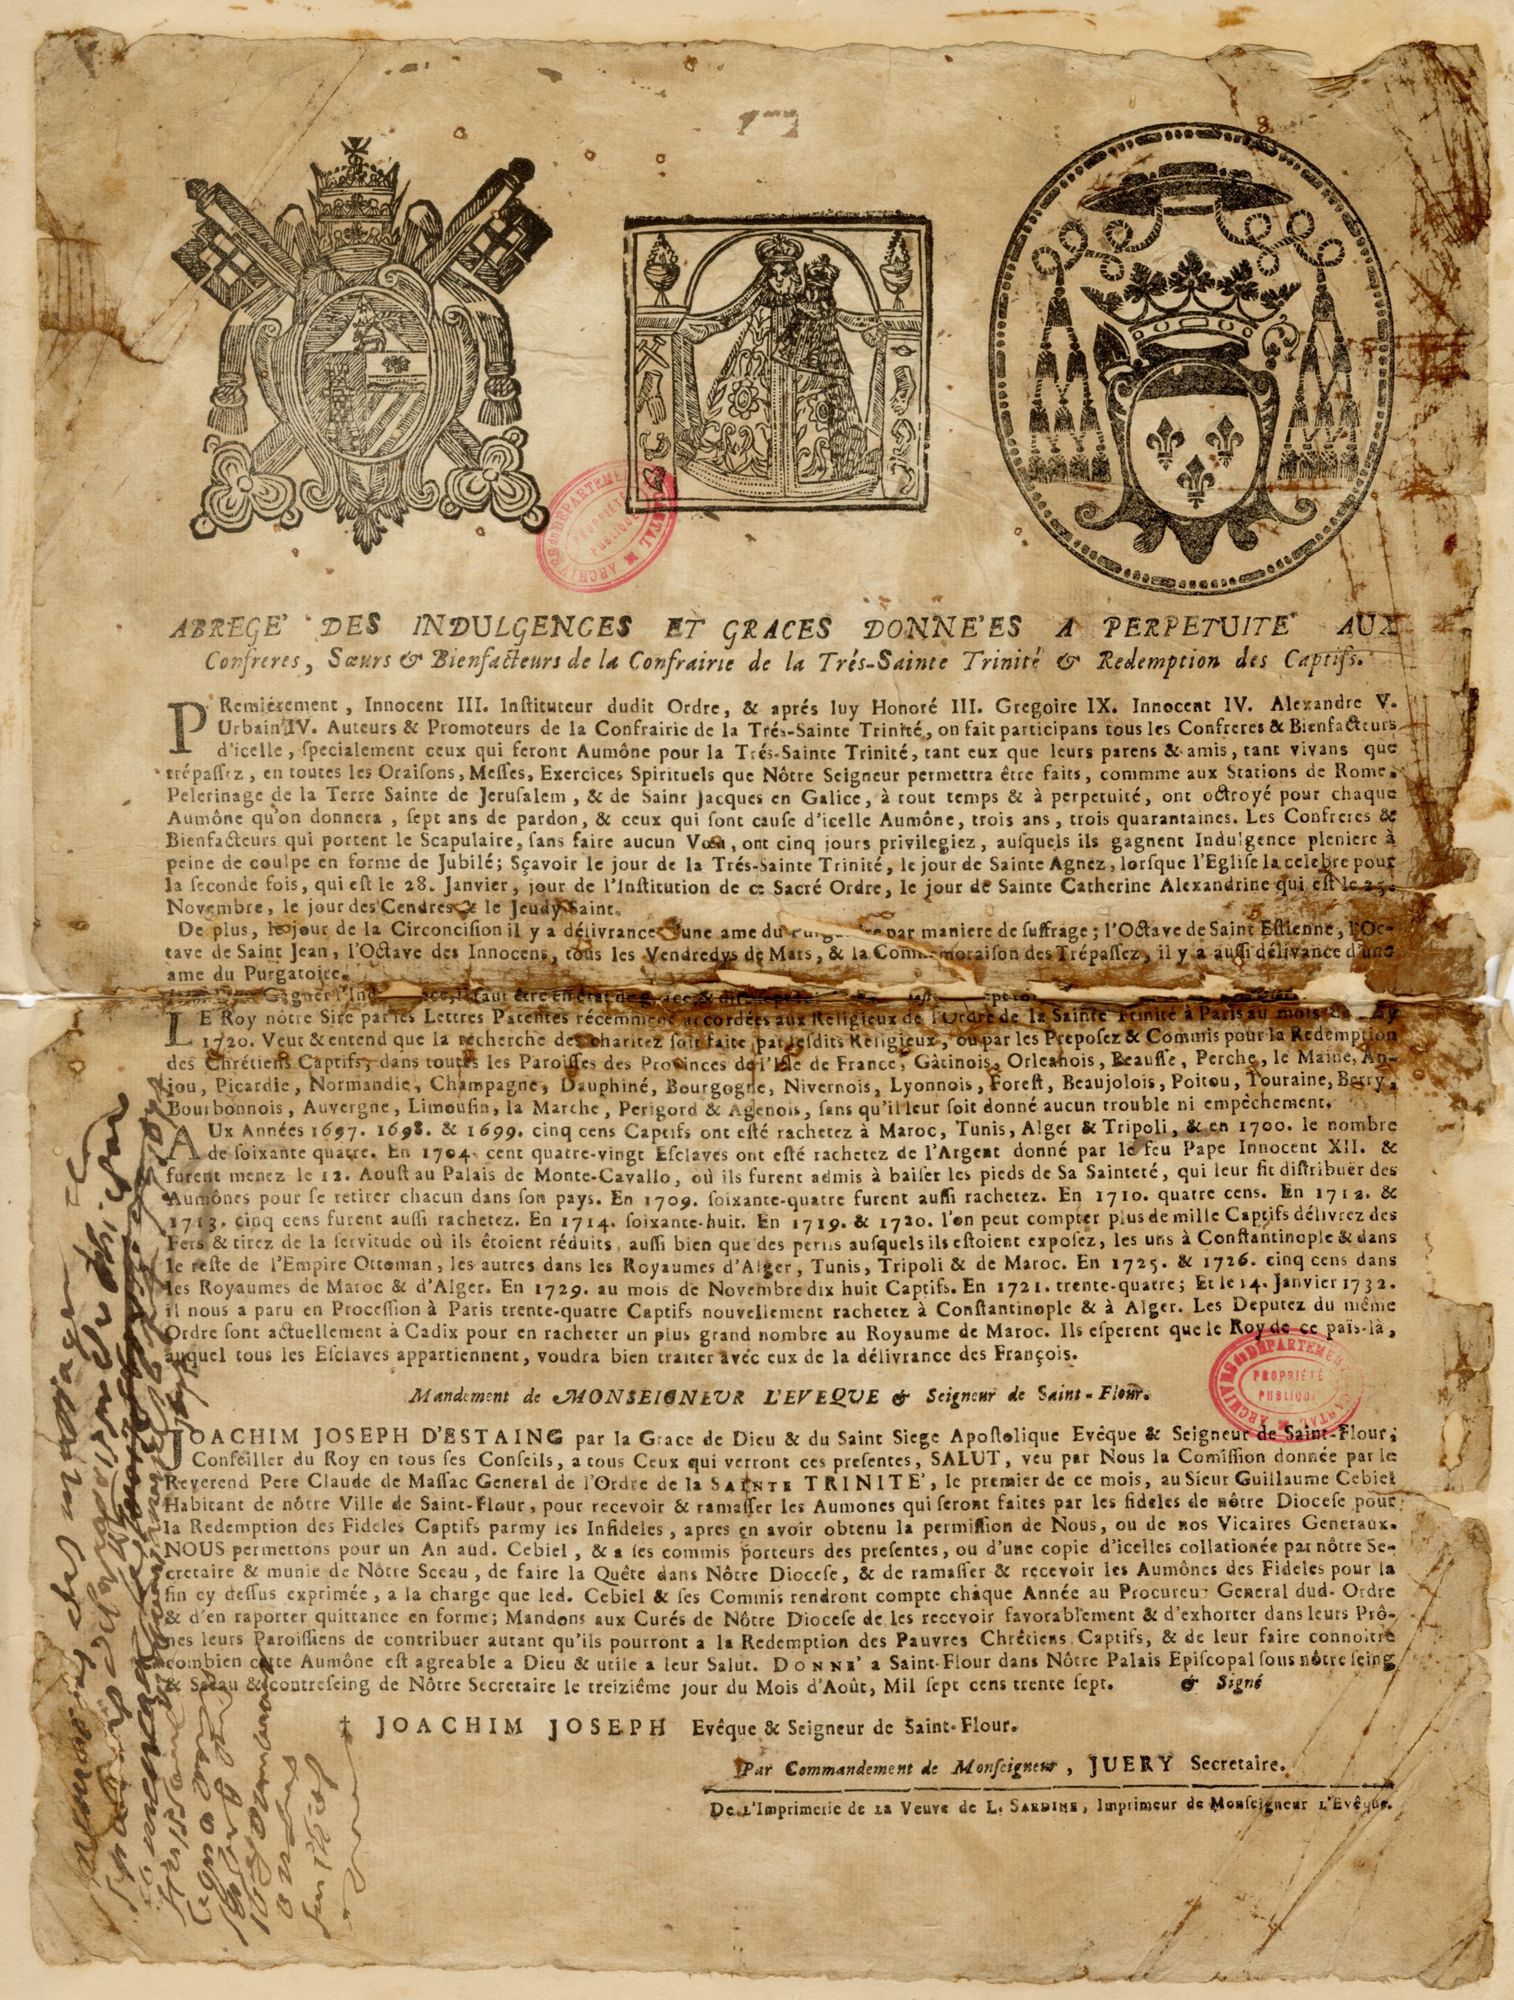 ABREGE' DES INDULGENCES ET GRACES DONNE'ES A PERPETUITE' AUX
Confreres, Sœurs & Bienfacteurs de la Confrairie de la Trés-Sainte Trinité & Redemption des Captifs.
PRemiérement, Innocent III. Instituteur dudit Ordre, & aprés luy Honoré III. Gregoire IX. Innocent IV. Alexandre V.
Urbain IV. Auteurs & Promoteurs de la Confrairie de la Trés-Sainte Trinité, on fait participans tous les Confreres & Bienfacteurs
d'icelle, specialement ceux qui feront Aumône pour la Trés-Sainte Trinité, tant eux que leurs parens & amis, tant vivans que
trépassez, en toutes les Oraisons, Messes, Exercices Spirituels que Nôtre Seigneur permettra être faits, commme aux Stations de Rome.
Pelerinage de la Terre Sainte de Jerusalem, & de Saint Jacques en Galice, à tout temps & à perpetuité, ont octroyé pour chaque
Aumône qu'on donnera, sept ans de pardon, & ceux qui sont cause d'icelle Aumône, trois ans, trois quarantaines. Les Confreres &
Bienfacteurs qui portent le Scapulaire, sans faire aucun Vœu, ont cinq jours privilegiez, ausquels ils gagnent Indulgence pleniere à
peine de coulpe en forme de Jubilé; Sçavoir le jour de la Trés-Sainte Trinité, le jour de Sainte Agnez, lorsque l'Eglise la celebre pour
la seconde fois, qui est le 28. Janvier, jour de l'Institution de ce Sacré Ordre, le jour de Sainte Catherine Alexandrine qui est le 25.
Novembre, le jour des Cendres & le Jeudy Saint.
De plus, le jour de la Circoncision il y a délivrance d'une ame du par maniere de suffrage; l'Octave de Saint Estienne, l'Oc-
tave de Saint Jean, l'Octave des Innocens, tous les Vendredys de Mars, & la Commemoraison des Trépassez, il y a aussi délivance d'une
ame du Purgatoire.
Gagner faut être en état de grace, &
LE Roy nôtre Sire par ses Lettres Patentes récemment accordées aux Religieux de l'Ordre de la Sainte Trinité à Paris au mois de
1720. Veut & entend que la recherche des charitez soit faite par lesdits Religieux, ou par les Preposez & Commis pour la Redemption
des Chrétiens Captifs, dans toutes les Paroisses des Provinces de l'Isle de France, Gâtinois, Orleanois, Beausse, Perche, le Maine, An-
jou, Picardie, Normandie, Champagne, Dauphiné, Bourgogne, Nivernois, Lyonnois, Forest, Beaujolois, Poitou, Touraine, Berry,
Bourbonnois, Auvergne, Limousin, la Marche, Perigord & Agenois, sans qu'il leur soit donné aucun trouble ni empêchement.
AUx Années 1697. 1698. & 1699. cinq cens Captifs ont esté rachetez à Maroc, Tunis, Alger & Tripoli, & en 1700. le nombre
de soixante quatre. En 1704. cent quatre-vingt Esclaves ont esté rachetez de l'Argent donné par le feu Pape Innocent XII. &
furent menez le 12. Aoust au Palais de Monte-Cavallo, où ils furent admis à baiser les pieds de Sa Sainteté, qui leur fit distribuer des
Aumônes pour se retirer chacun dans son pays. En 1709. soixante-quatre furent aussi rachetez. En 1710. quatre cens. En 1712. &
1713. cinq cens furent aussi rachetez. En 1714. soixante-huit. En 1719. & 1720. l'on peut compter plus de mille Captifs délivrez des
Fers & tirez de la servitude où ils étoient réduits, aussi bien que des perils ausquels ils estoient exposez, les uns à Constantinople & dans
le reste de l'Empire Ottoman, les autres dans les Royaumes d'Alger, Tunis, Tripoli & de Maroc. En 1725. & 1726. cinq cens dans
les Royaumes de Maroc & d'Alger. En 1729. au mois de Novembre dix huit Captifs. En 1721. trente-quatre; Et le 14. Janvier 1732.
il nous a paru en Procession à Paris trente-quatre Captifs nouvellement rachetez à Constantinople & à Alger. Les Deputez du même
Ordre sont actuellement à Cadix pour en racheter un plus grand nombre au Royaume de Maroc. Ils esperent que le Roy de ce païs-là,
auquel tous les Esclaves appartiennent, voudra bien traiter avec eux de la délivrance des François.
Mandement de MONSEIGNEUR L'EVEQUE & Seigneur de Saint-Flour.
JOACHIM JOSEPH D'ESTAING par la Grace de Dieu & du Saint Siege Apostolique Evêque & Seigneur de Saint-Flour,
Conseiller du Roy en tous ses Conseils, a tous Ceux qui verront ces presentes, SALUT, veu par Nous la Comission donnée par le
Reverend Pere Claude de Massac General de l'Ordre de la SAINTE TRINITE', le premier de ce mois, au Sieur Guillaume Cebiel
Habitant de nôtre Ville de Saint-Flour, pour recevoir & ramasser les Aumones qui seront faites par les fideles de nôtre Diocese pour
la Redemption des Fideles Captifs parmy les Infideles, apres en avoir obtenu la permission de Nous, ou de nos Vicaires Generaux.
NOUS permettons pour un An aud. Cebiel, & a ses commis porteurs des presentes, ou d'une copie d'icelles collationée par nôtre Se-
cretaire & munie de Nôtre Sceau, de faire la Quête dans Nôtre Diocese, & de ramasser & recevoir les Aumônes des Fideles pour la
fin cy dessus exprimée, a la charge que led. Cebiel & ses Commis rendront compte chaque Année au Procureur General dud. Ordre
& d'en raporter quittance en forme; Mandons aux Curés de Nôtre Diocese de les recevoir favorablement & d'exhorter dans leurs Prô-
nes leurs Paroissiens de contribuer autant qu'ils pourront a la Redemption des Pauvres Chrêtiens Captifs, & de leur faire connoitre
combien cette Aumône est agreable a Dieu & utile a leur Salut. DONNE' a Saint-Flour dans Nôtre Palais Episcopal sous nôtre seing
& Sceau & contreseing de Nôtre Secretaire le treiziême jour du Mois d'Août, Mil sept cens trente sept. & Signé
† JOACHIM JOSEPH Evêque & Seigneur de Saint-Flour.
Par Commandement de Monseigneur, JUERY Secretaire.
De L'Imprimerie de LA Veuve de L. SARDINE, Imprimeur de Monseigneur L'Evêque.
ARCHIVES DU DÉPARTEMENT CANTAL
PROPRIÉTÉ
PUBLIQUE
ARCHIVES DU DÉPARTEMENT CANTAL
PROPRIÉTÉ
PUBLIQUE